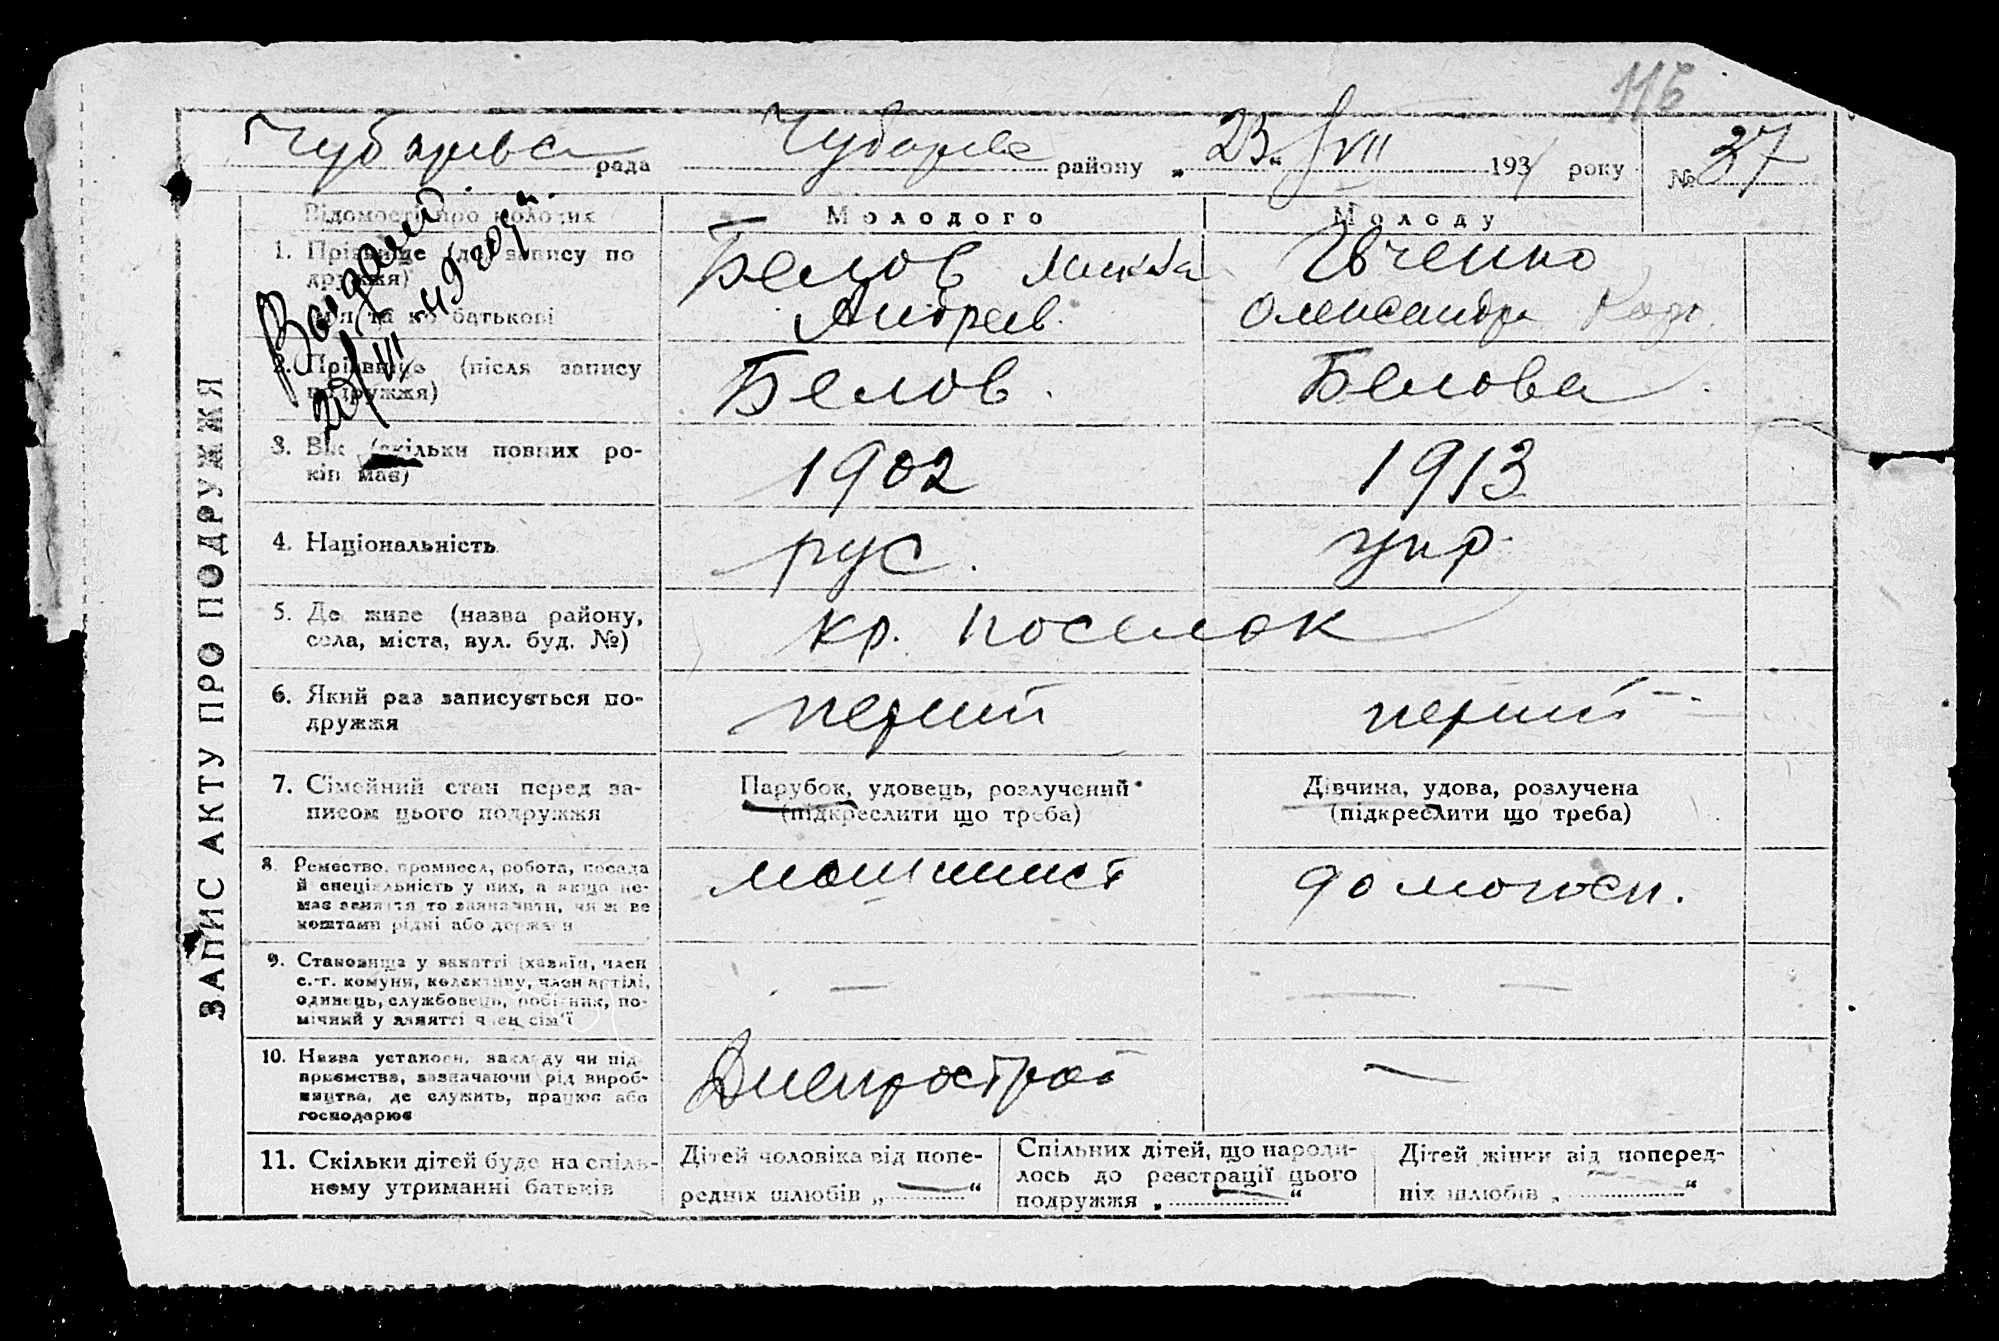 116
Чубарівсь рада Чубарівс району „23“ VII 1931 року № 37
Відомості про молодих Молодого Молоду
Видані
1. Прізвище (до запису по дружжя) ім'я та по батькові
Белов Микита
Андреєв.
Івченко
Олександра
2. Прізвище (після запису подружжя) Белов. Белова
3. Вік (скільки повних років має) 1902 1913
4. Національність рус. укр.
5. Де живе (назва району, села, міста, вул. буд. №) кр. поселок
6. Який раз записується подружжя перший перший
7. Сімейний стан перед записом цього подружжя
Парубок, удовець, розлучений
(підкреслити що треба)
Дівчина, удова, розлучена
(підкреслити що треба)
8. Ремество, промисел, робота, посада й спеціяльність у них, а якщо немає заняття то зазначити, чи ж ве коштами рідні або держави
машинист
домогосп.
9. Становище у занятті (хазяїн, член с.-г. комуни, колективу, член артілі, одинець, службовець, робітник, помічний у занятті член сім'ї — —
10. Назва установи, закладу чи підприємства, зазначаючи рід виробництва, де служить, працює або господарює Днепрострой —
11. Скільки дітей буде на спільному утриманні батьків
Дітей чоловіка від попередніх шлюбів „ — “
Спільних дітей, що народилось до реєстрації цього подружжя „ — “
Дітей жінки від попередніх шлюбів „ — “
ЗАПИС АКТУ ПРО ПОДРУЖЖЯ